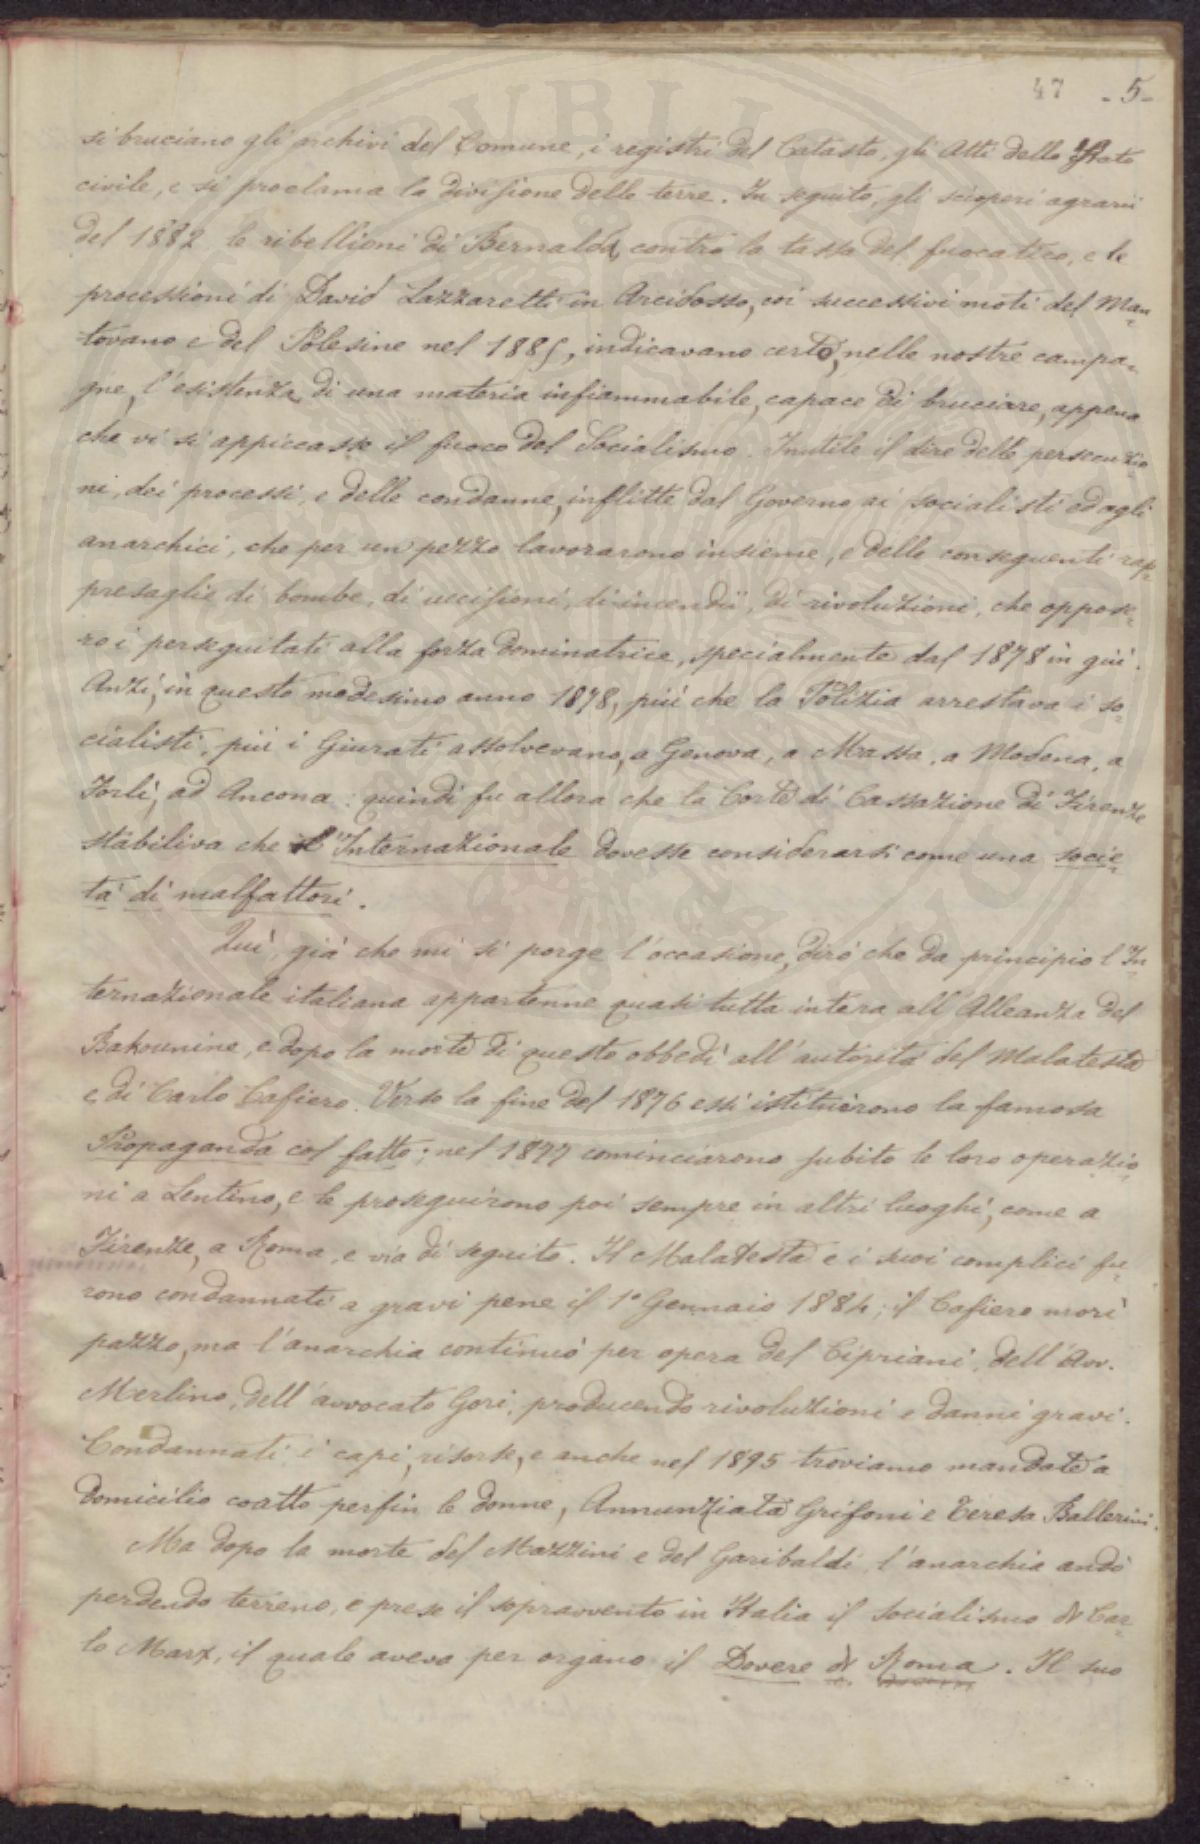 47 - 5 -
si bruciano gli archivi del Comune, i registri del Catasto, gli Atti dello Stato
civile, e si proclama la divisione delle terre. In seguito, gli scioperi agrarii
del 1882 le ribellioni di Bernalda, contro la tassa del fuocatico, e le
processioni di David Lazzaretti in Arcidosso, coi successivi moti del Man-
tovano e del Polesine nel 1885, indicavano certo, nelle nostre campa-
gne, l'esistenza di una materia infiammabile, capace di bruciare, appena
che vi si appiccasse il fuoco del Socialismo. Inutile il dire delle persecuzio
ni, dei processi, e delle condanne, inflitte dal Governo ai socialisti ed agli
anarchici, che per un pezzo lavorarono insieme, e delle conseguenti rap-
presaglie di bombe, di uccisioni, di incendii, di rivoluzioni, che oppose-
ro i perseguitati alla forza dominatrice, specialmente dal 1878 in giù.
Anzi, in questo medesimo anno 1878, più che la Polizia arrestava i so-
cialisti, più i Giurati assolvevano, a Genova, a Massa, a Modena, a
Forlì, ad Ancona: quindi fu allora che la Corte di Cassazione di Firenze
stabiliva che l'Internazionale dovesse considerarsi come una socie-
tà di malfattori.
Qui, già che mi si porge l'occasione, dirò che da principio l'In-
ternazionale italiana appartenne quasi tutta intera all'Alleanza del
Bakounine, e dopo la morte di questo obbedì all'autorità del Malatesta
e di Carlo Cafiero. Verso la fine del 1876 essi istituirono la famosa
Propaganda col fatto; nel 1877 cominciarono subito le loro operazio-
ni a Lentino, e le proseguirono poi sempre in altri luoghi, come a
Firenze, a Roma, e via di seguito. Il Malatesta e i suoi complici fu-
rono condannati a gravi pene il 1° Gennaio 1884; il Cafiero morì
pazzo, ma l'anarchia continuò per opera del Cipriani, dell'Avv.
Merlino, dell'avvocato Gori, producendo rivoluzioni e danni gravi.
Condannati i capi, risorse, e anche nel 1895 troviamo mandate a
domicilio coatto perfin le donne, Annunziata Grifoni e Teresa Ballerini.
Ma dopo la morte del Mazzini e del Garibaldi, l'anarchia andò
perdendo terreno, e prese il sopravvento in Italia il socialismo di Car-
lo Marx, il quale aveva per organo il Dovere di Roma. Il suo